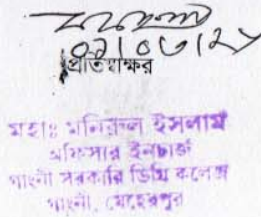 ০১/০৩/২১
প্রতিস্বাক্ষর
মহাঃ মনিরুল ইসলাম
অফিসার ইনচার্জ
গাংনী সরকারি ডিগ্রি কলেজ
গাংনী, মেহেরপুর